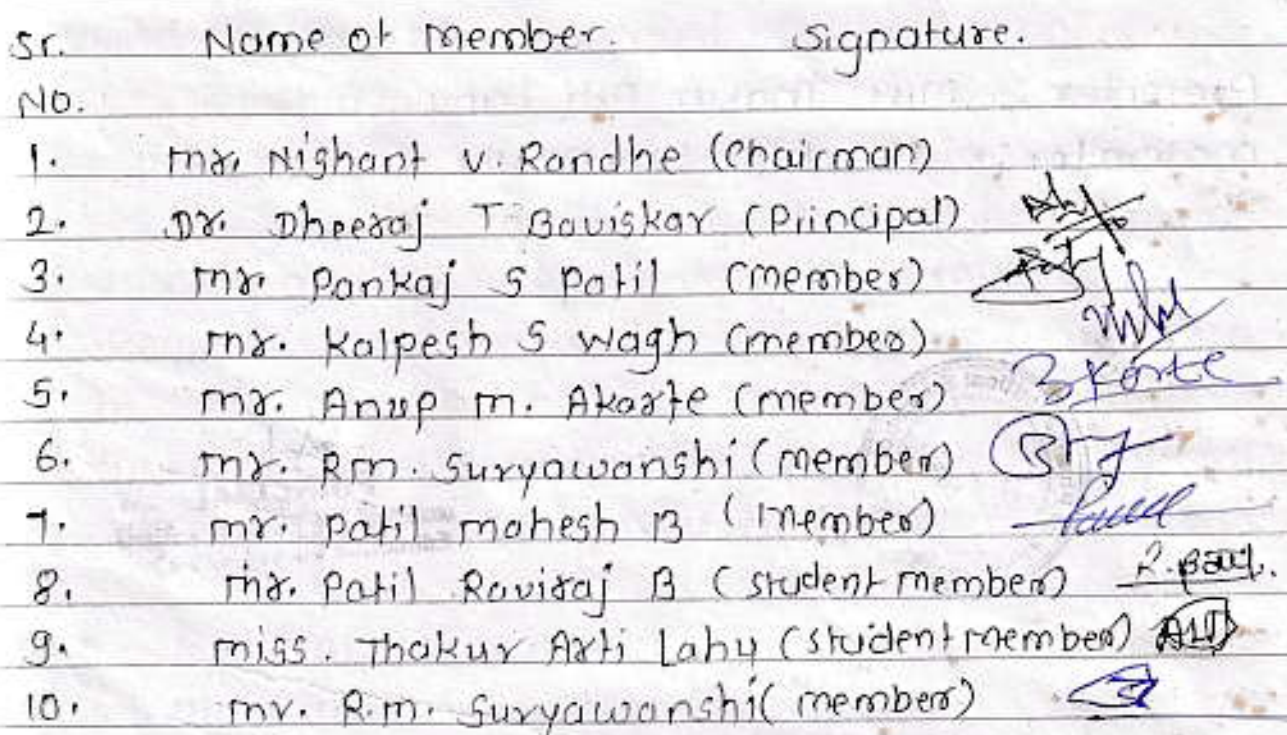 Sr. Name of Member. Signature.
No.
1. Mr. Nishant V. Randhe (Chairman)
2. Dr. Dheeraj T Baviskar (Principal)
3. Mr. Pankaj S Patil (member)
4. Mr. Kalpesh S Wagh (member)
5. Mr. Anup M. Akarte (member) Akarte
6. Mr. R.M. Suryawanshi (member)
7. Mr. Patil Mahesh B (Member)
8. Mr. Patil Raviraj B (student member)
9. Miss. Thakur Arti Lahu (student member)
10. Mr. R.M. Suryawanshi (member)